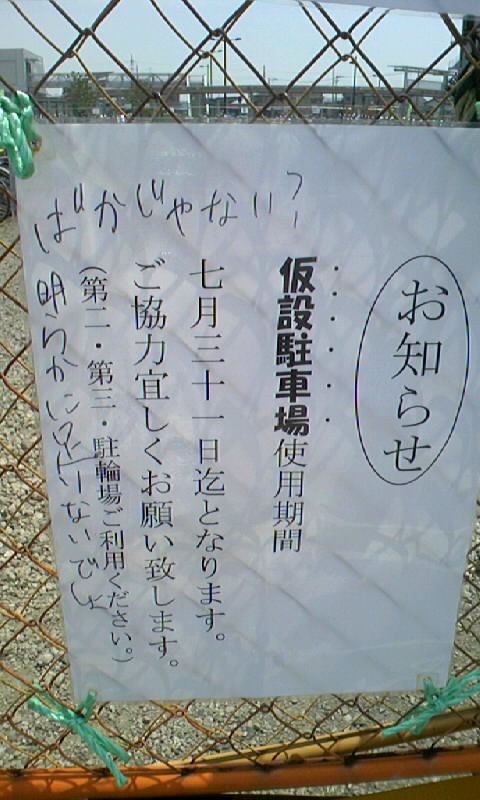 お知らせ
仮設駐車場使用期間
七月三十一日迄となります。
ご協力宜しくお願い致します。
(第二・第三・駐輪場ご利用ください。)
ばかじゃない?
明らかに足りないでしょ